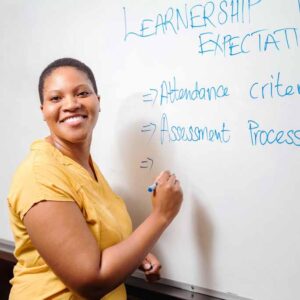 LEARNERSHIP
EXPECTATI
⇒ Attendance criter
⇒ Assessment Process
⇒